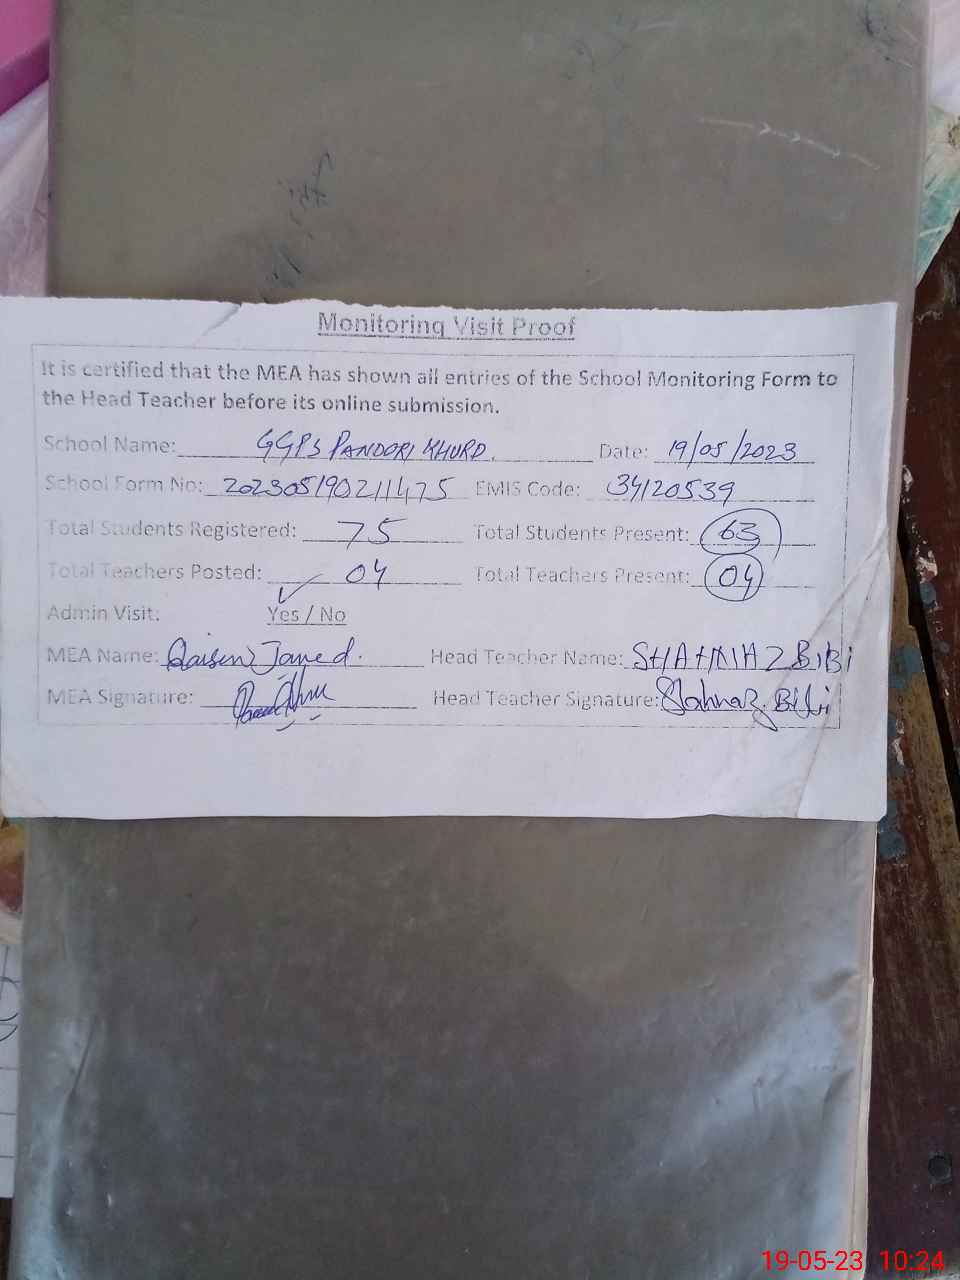 Monitoring Visit Proof
It is certified that the MEA has shown all entries of the School Monitoring Form to
the Head Teacher before its online submission.
School Name: GGPS PANDORI KHURD. Date: 19/05/2023
School Form No: 202305190211475 EMIS Code: 34120539
Total Students Registered: 75 Total Students Present: 63
Total Teachers Posted: 04 Total Teachers Present: 04
Admin Visit: Yes / No
MEA Name: Javed. Head Teacher Name: BiBi
MEA Signature: Head Teacher Signature: Shahnaz Bibi
19-05-23 10:24